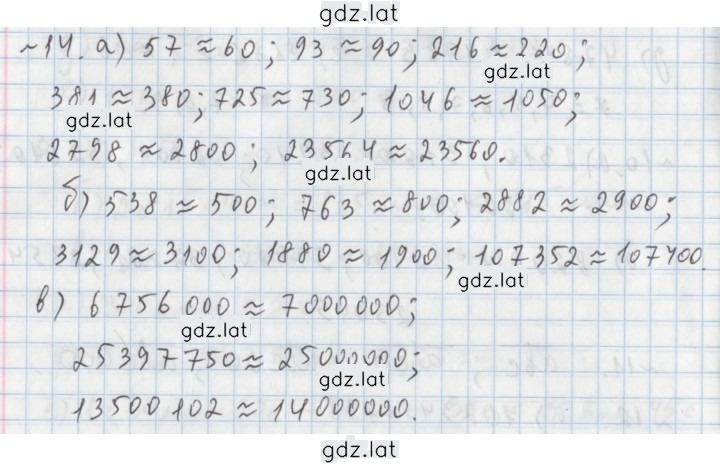 gdz.lat
~14. а) 57 ≈ 60; 93 ≈ 90; 216 ≈ 220;
gdz.lat
381 ≈ 380; 725 ≈ 730; 1046 ≈ 1050;
gdz.lat
2798 ≈ 2800; 23564 ≈ 23560.
gdz.lat
б) 538 ≈ 500; 763 ≈ 800; 2882 ≈ 2900;
3129 ≈ 3100; 1880 ≈ 1900; 107352 ≈ 107400.
gdz.lat
в) 6756 000 ≈ 7000000;
gdz.lat
25397750 ≈ 25000000;
gdz.lat
13500102 ≈ 14000000.
gdz.lat